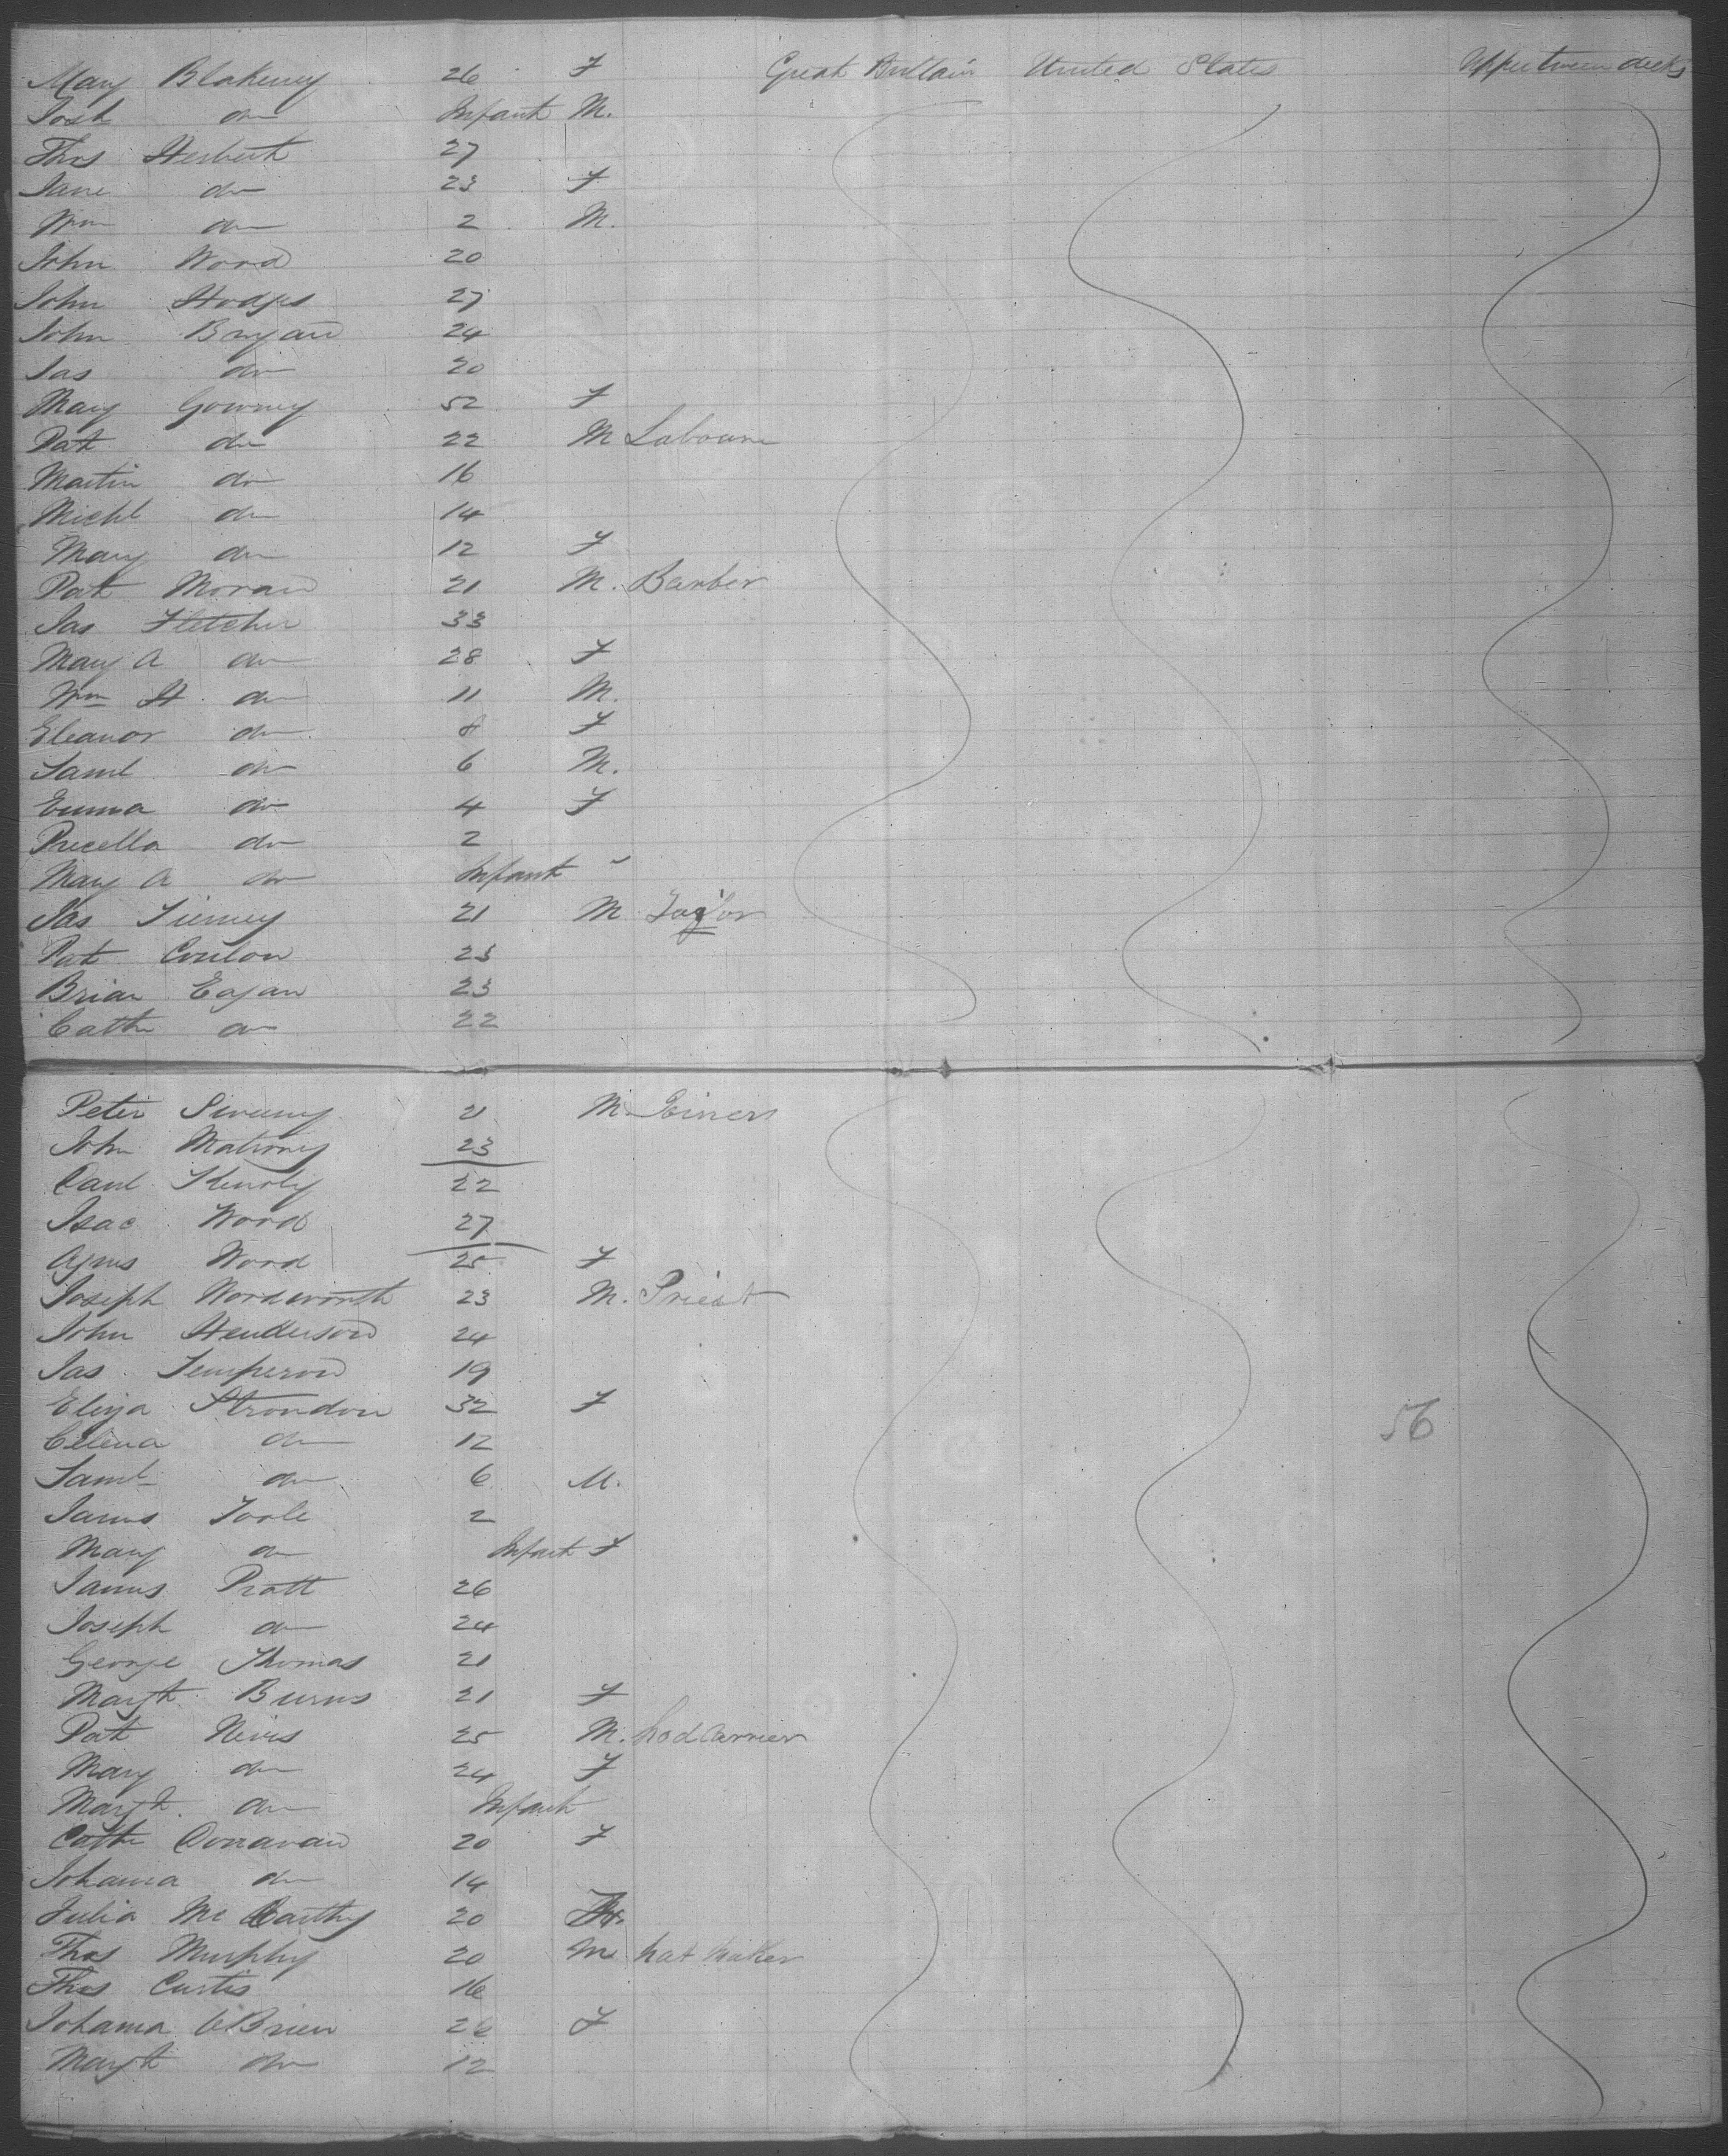 Mary Blakeney 26 F Great Brittain United States Upper tween decks
Josh do Infant M.
Thos Herbert 27
Jane do 23 F
Wm do 2 M.
John Wood 20
John Hodges 27
John Bryan 24
Jas do 20
Mary Gowney 52 F
Pat do 22 M Labourer
Martin do 16
Michl do 14
Mary do 12 F
Pat Moran 21 M. Barber
Jas Fletcher 33
Mary A do 28 F
Wm H. do 11 M.
Eleanor do 8 F
Saml do 6 M.
Emma do 4 F
Precella do 2
Mary A do Infant "
Jas Tierney 21 M Taylor
Pat Conlon 23
Brian Eagan 23
Cath do 22
Peter Sweeny 21 M. Joiners
John Mahoney 23
Danl Kenoly 22
Isac Wood 27
Agnes Wood 25 F
Joseph Wordsworth 23 M. Priest
John Henderson 24
Jas. Temperon 19
Eliza Strondon 32 F
Celena do 12 56
Saml do 6 M.
James Toole 2
Mary do Infant F
James Pratt 26
Joseph do 24
George Thomas 21
Margt Burns 21 F
Pat Nevis 25 M. hod Carrier
Mary do 24 F
Margt. do Infant
Cath Donavan 20 F
Johanna do 14
Julia Mc Carthy 20 F.
Thos Murphy 20 M hat maker
Thos Curtis 16
Johanna O'Brien 26 F
Margt do 12